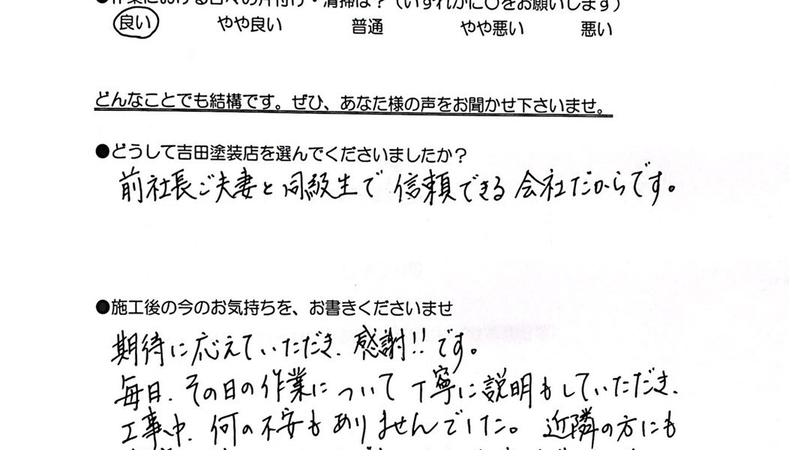 ●作業における日々の片付け・清掃は?(いずれかに○をお願いします)
良い やや良い 普通 やや悪い 悪い
どんなことでも結構です。ぜひ、あなた様の声をお聞かせ下さいませ。
●どうして吉田塗装店を選んでくださいましたか?
前社長ご夫妻と同級生で信頼できる会社だからです。
●施工後の今のお気持ちを、お書きくださいませ
期待に応えていただき、感謝!!です。
毎日、その日の作業について丁寧に説明もしていただき、
工事中、何の不安もありませんでした。近隣の方にも